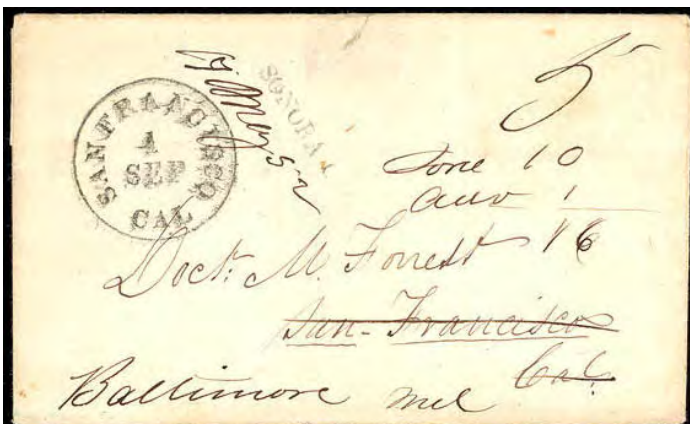 SAN FRANCISCO
1
SEP
CAL
SONORA
17 May 52
5
Fore 10
Adv 1
16
Doct. M. Forrest
San-Francisco
Cal.
Baltimore Md